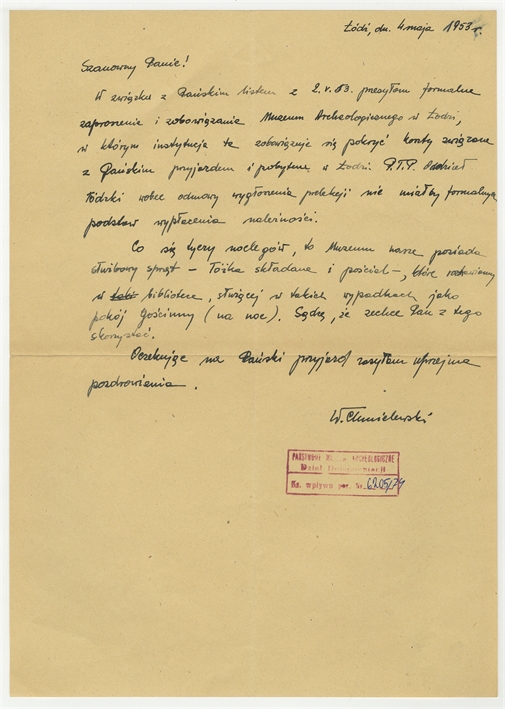 Łódź, dn. 4 maja 1953 r.
Szanowny Panie!
W związku z Pańskim listem z 2.V.53. przesyłam formalne
zaproszenie i zobowiązanie Muzeum Archeologicznego w Łodzi,
w którym instytucja ta zobowiązuje się pokryć koszty związane
z Pańskim przyjazdem i pobytem w Łodzi. P.T.P. Oddział
Łódzki wobec odmowy wygłoszenia prelekcji nie miałby formalnych
podstaw wypłacenia należności.
Co się tyczy noclegów, to Muzeum nasze posiada
służbowy sprzęt – łóżka składane i pościel –, które rozstawiamy
w bibliotece, służącej w takich wypadkach jako
pokój gościnny (na noc). Sądzę, że zechce Pan z tego
skorzystać.
Oczekując na Pański przyjazd zasyłam uprzejme
pozdrowienia.
W. Chmielewski
PAŃSTWOWE ARCHEOLOGICZNE
Dział Dokumentacji
Ks. wpływu poz. Nr. 6205/74